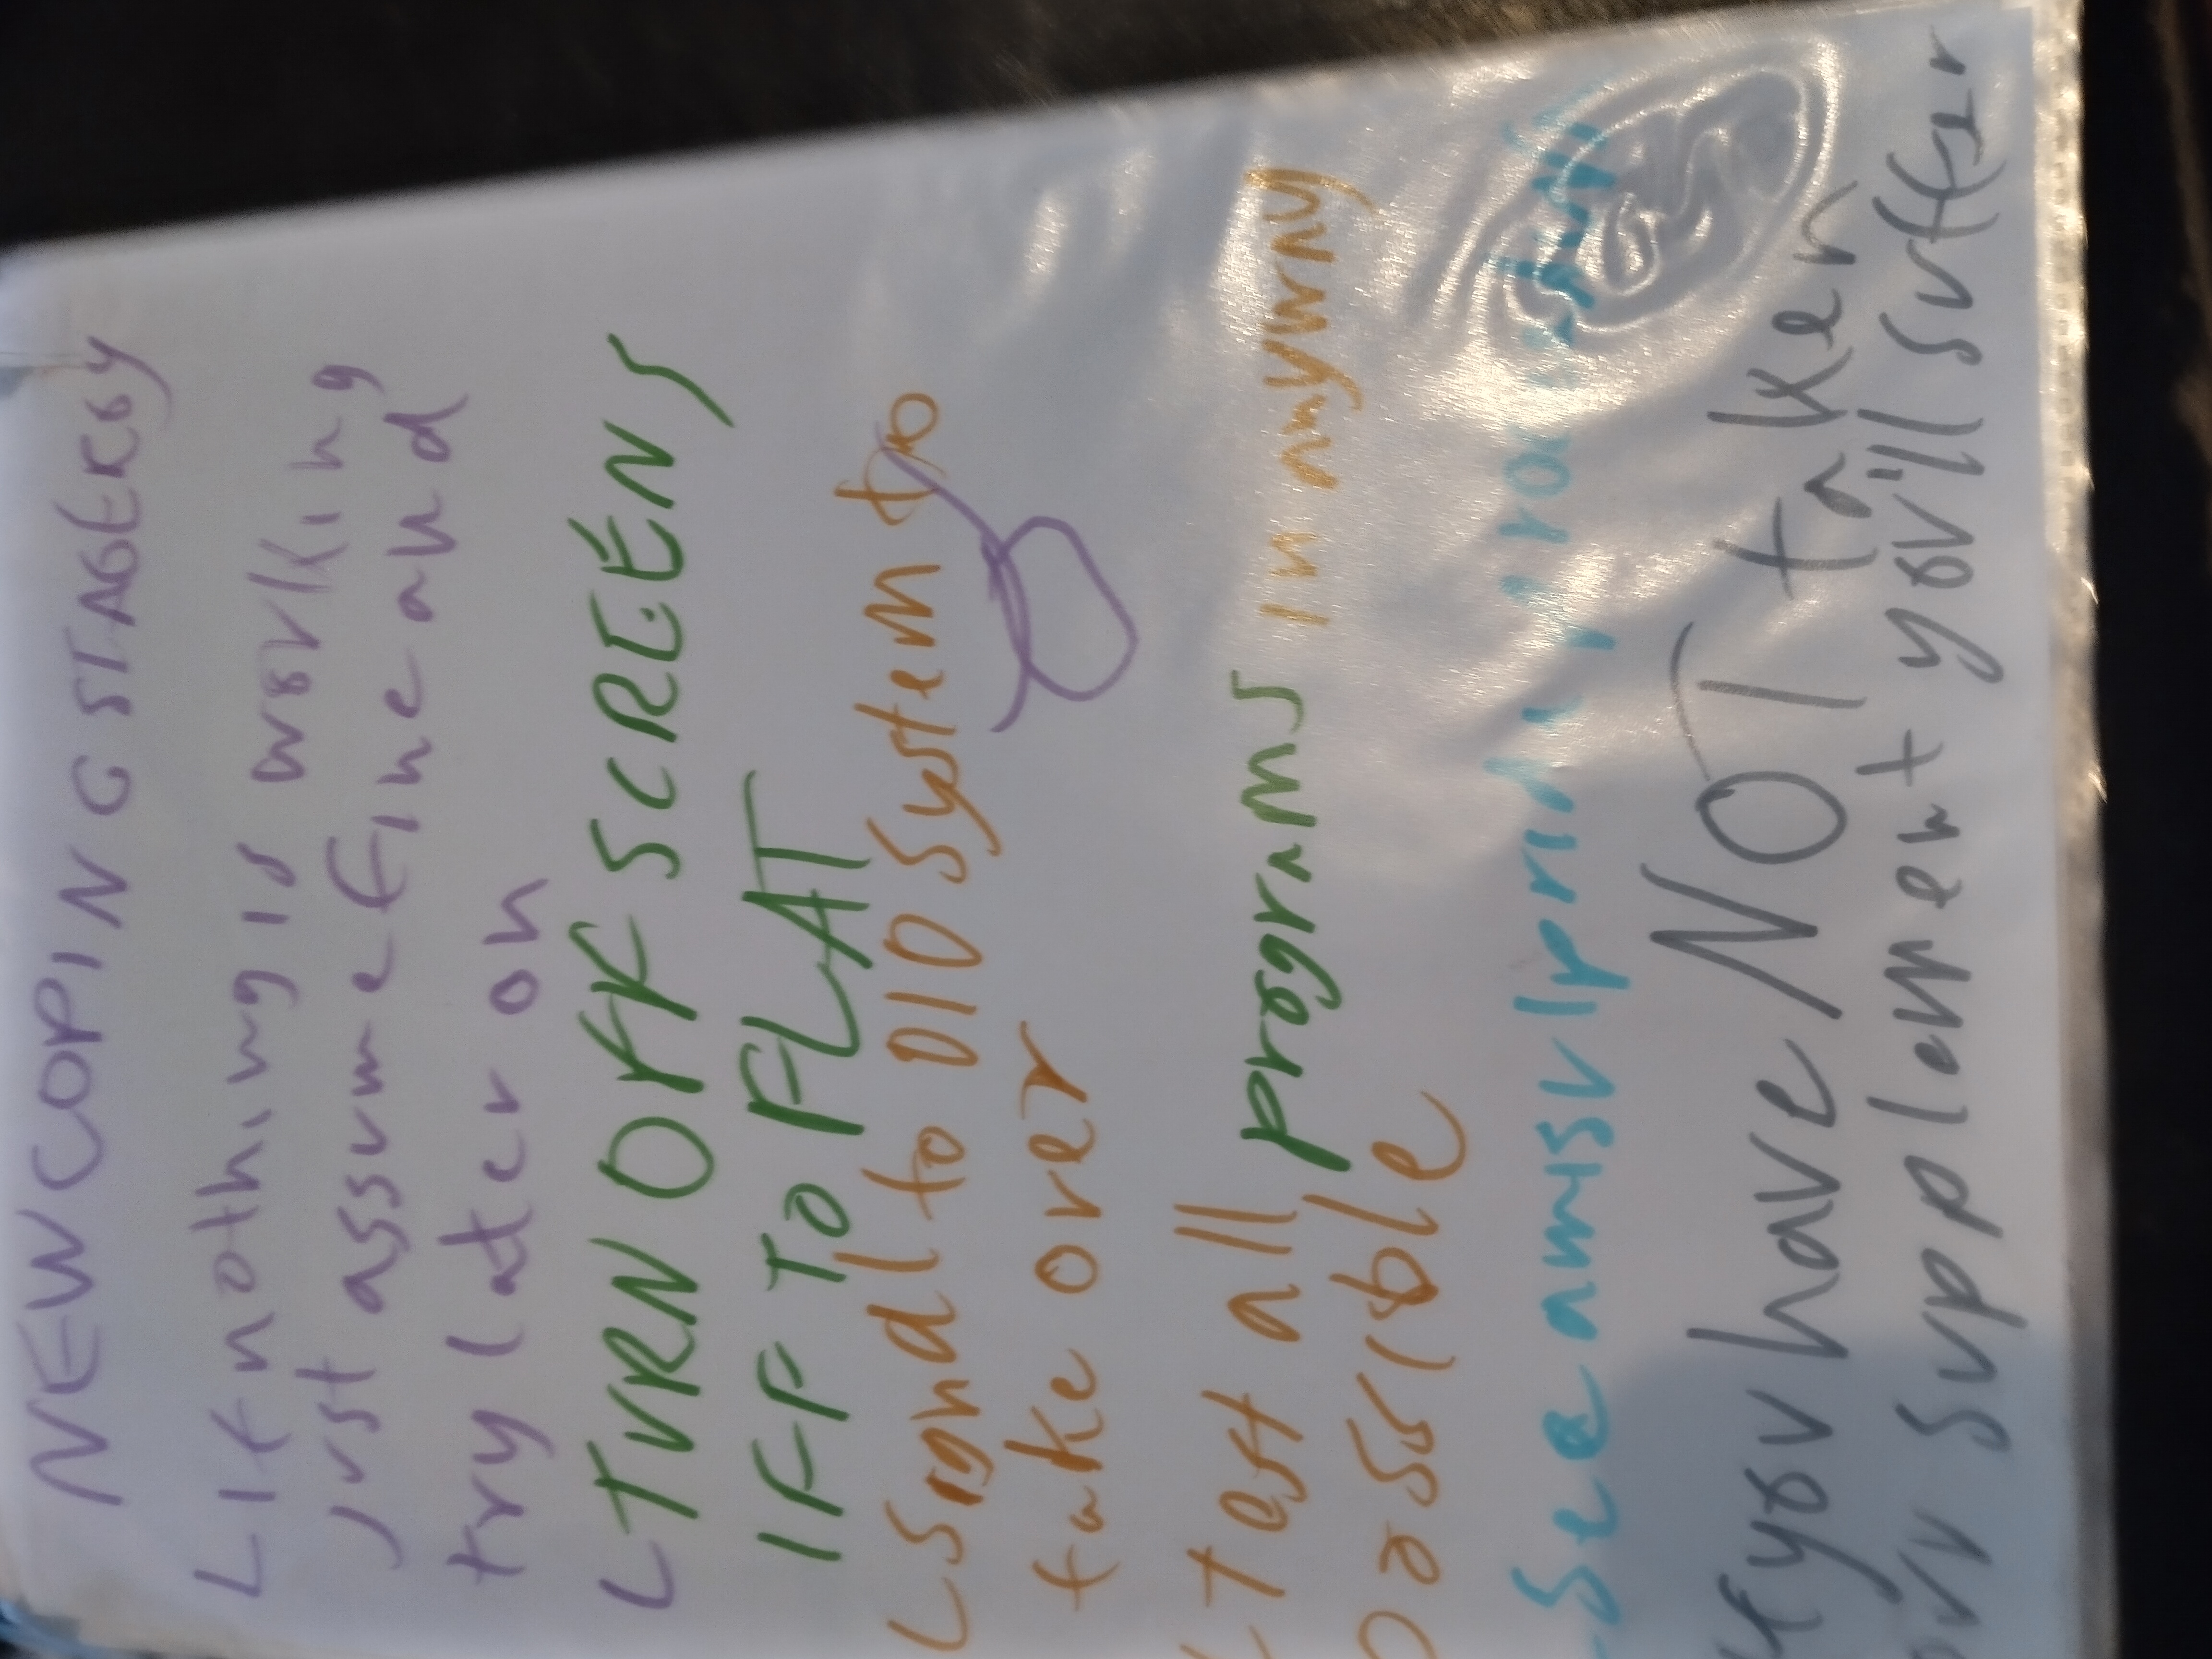 NEW COPING STAGERGY
L IF nothing is working
just assume fine and
try later on
L TURN OFF SCREENS
IFF TO FLAT
L Signal to DID System to
take over
L test all programs in anywny
possible
Use amisulpride
if you have NOT taken
your suplement you'll suffer